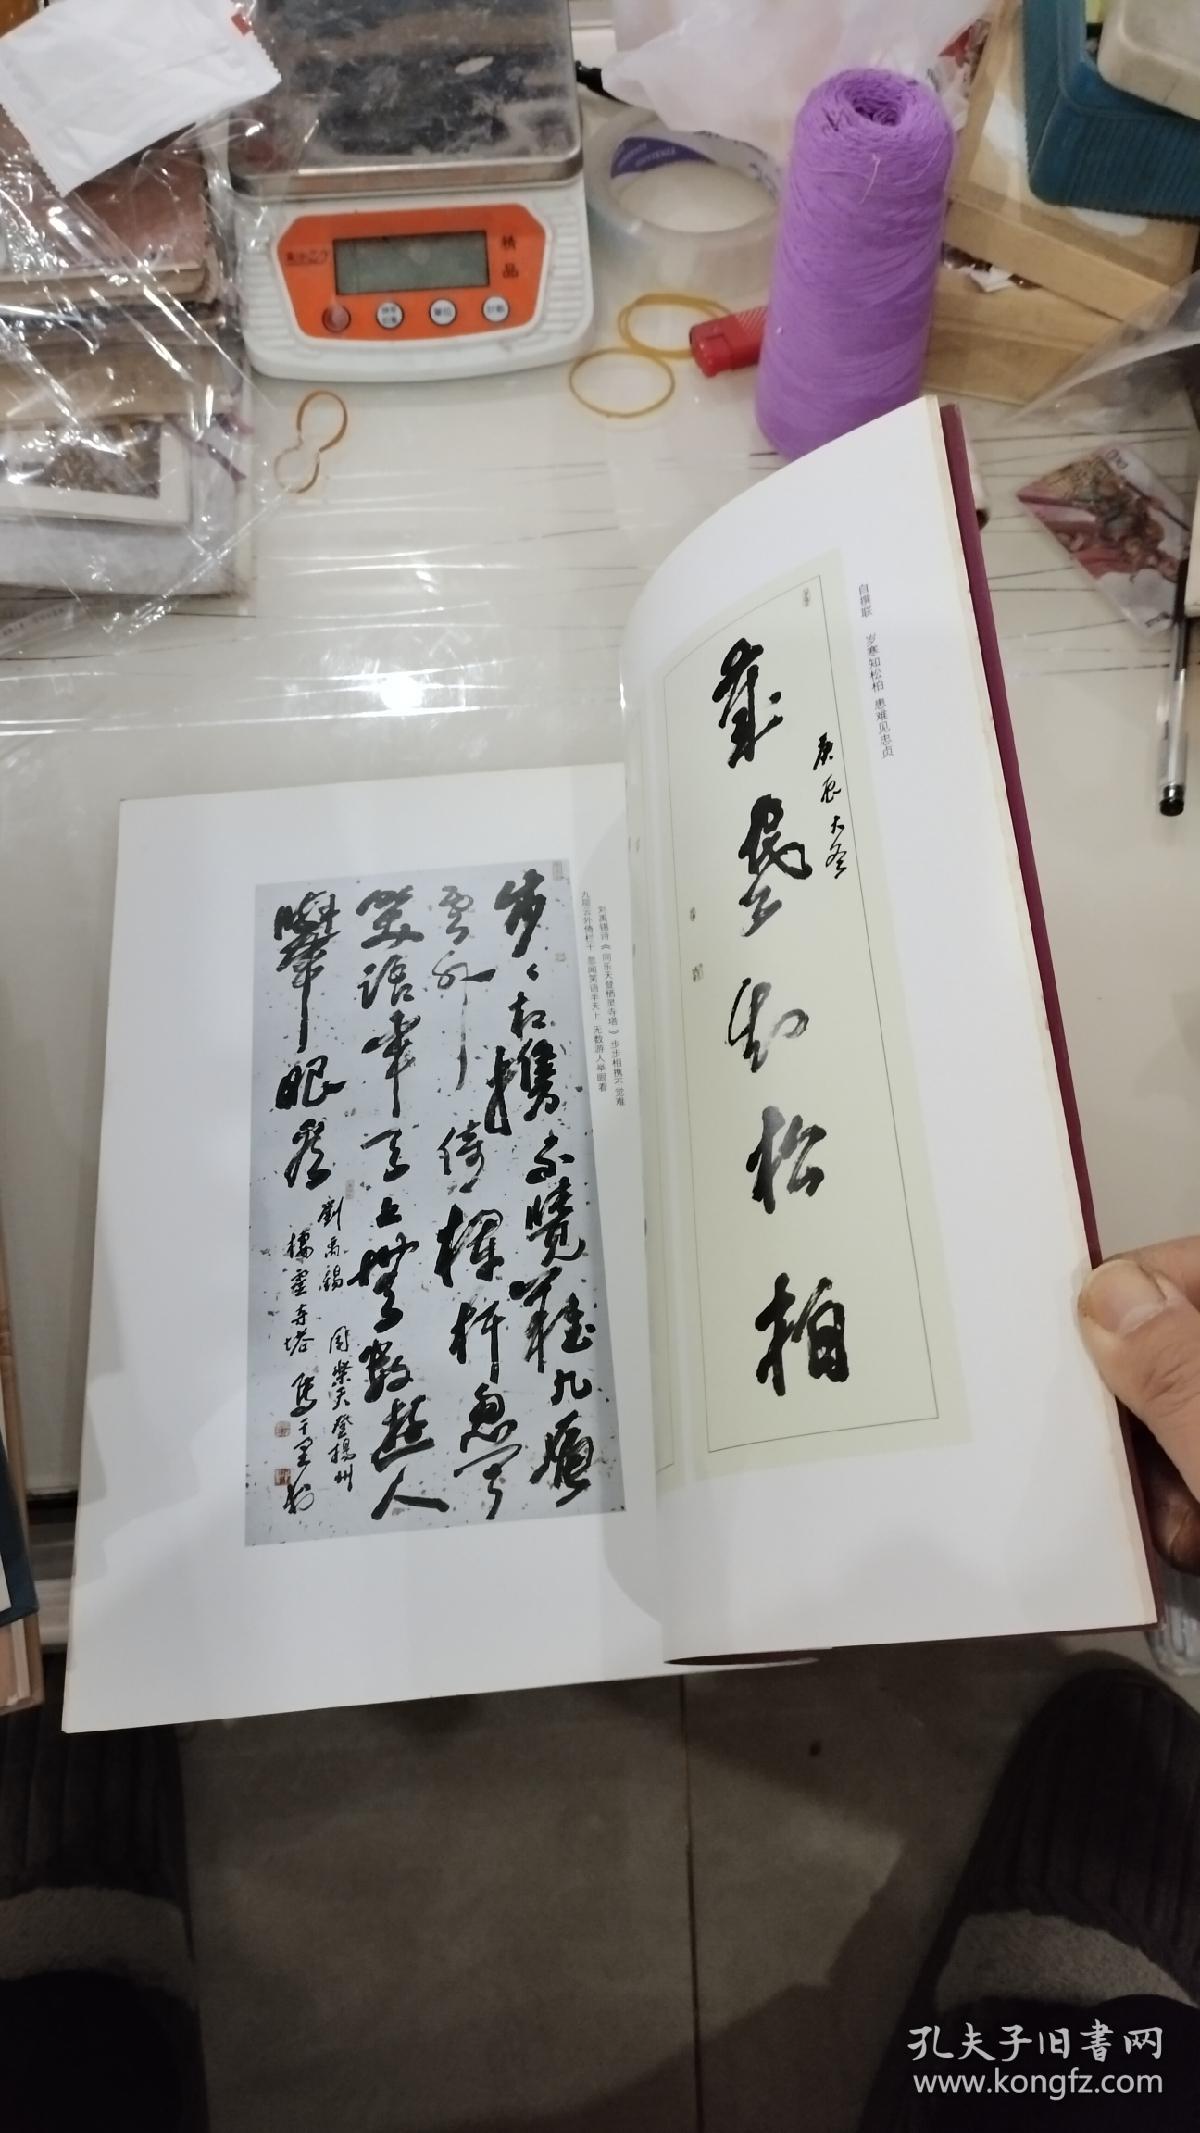 精品
自撰联 岁寒知松柏 患难见忠贞
庚辰大冬
岁寒知松柏
刘禹锡诗《同乐天登栖灵寺塔》 步步相携不觉难
九层云外倚栏干 忽闻笑语半天上 无数游人举眼看
步々相携不觉难九层
云外倚栏杆忽闻
笑语半天上无数游人
举眼看
刘禹锡 同乐天登扬州
栖灵寺塔
孔夫子旧书网
www.kongfz.com